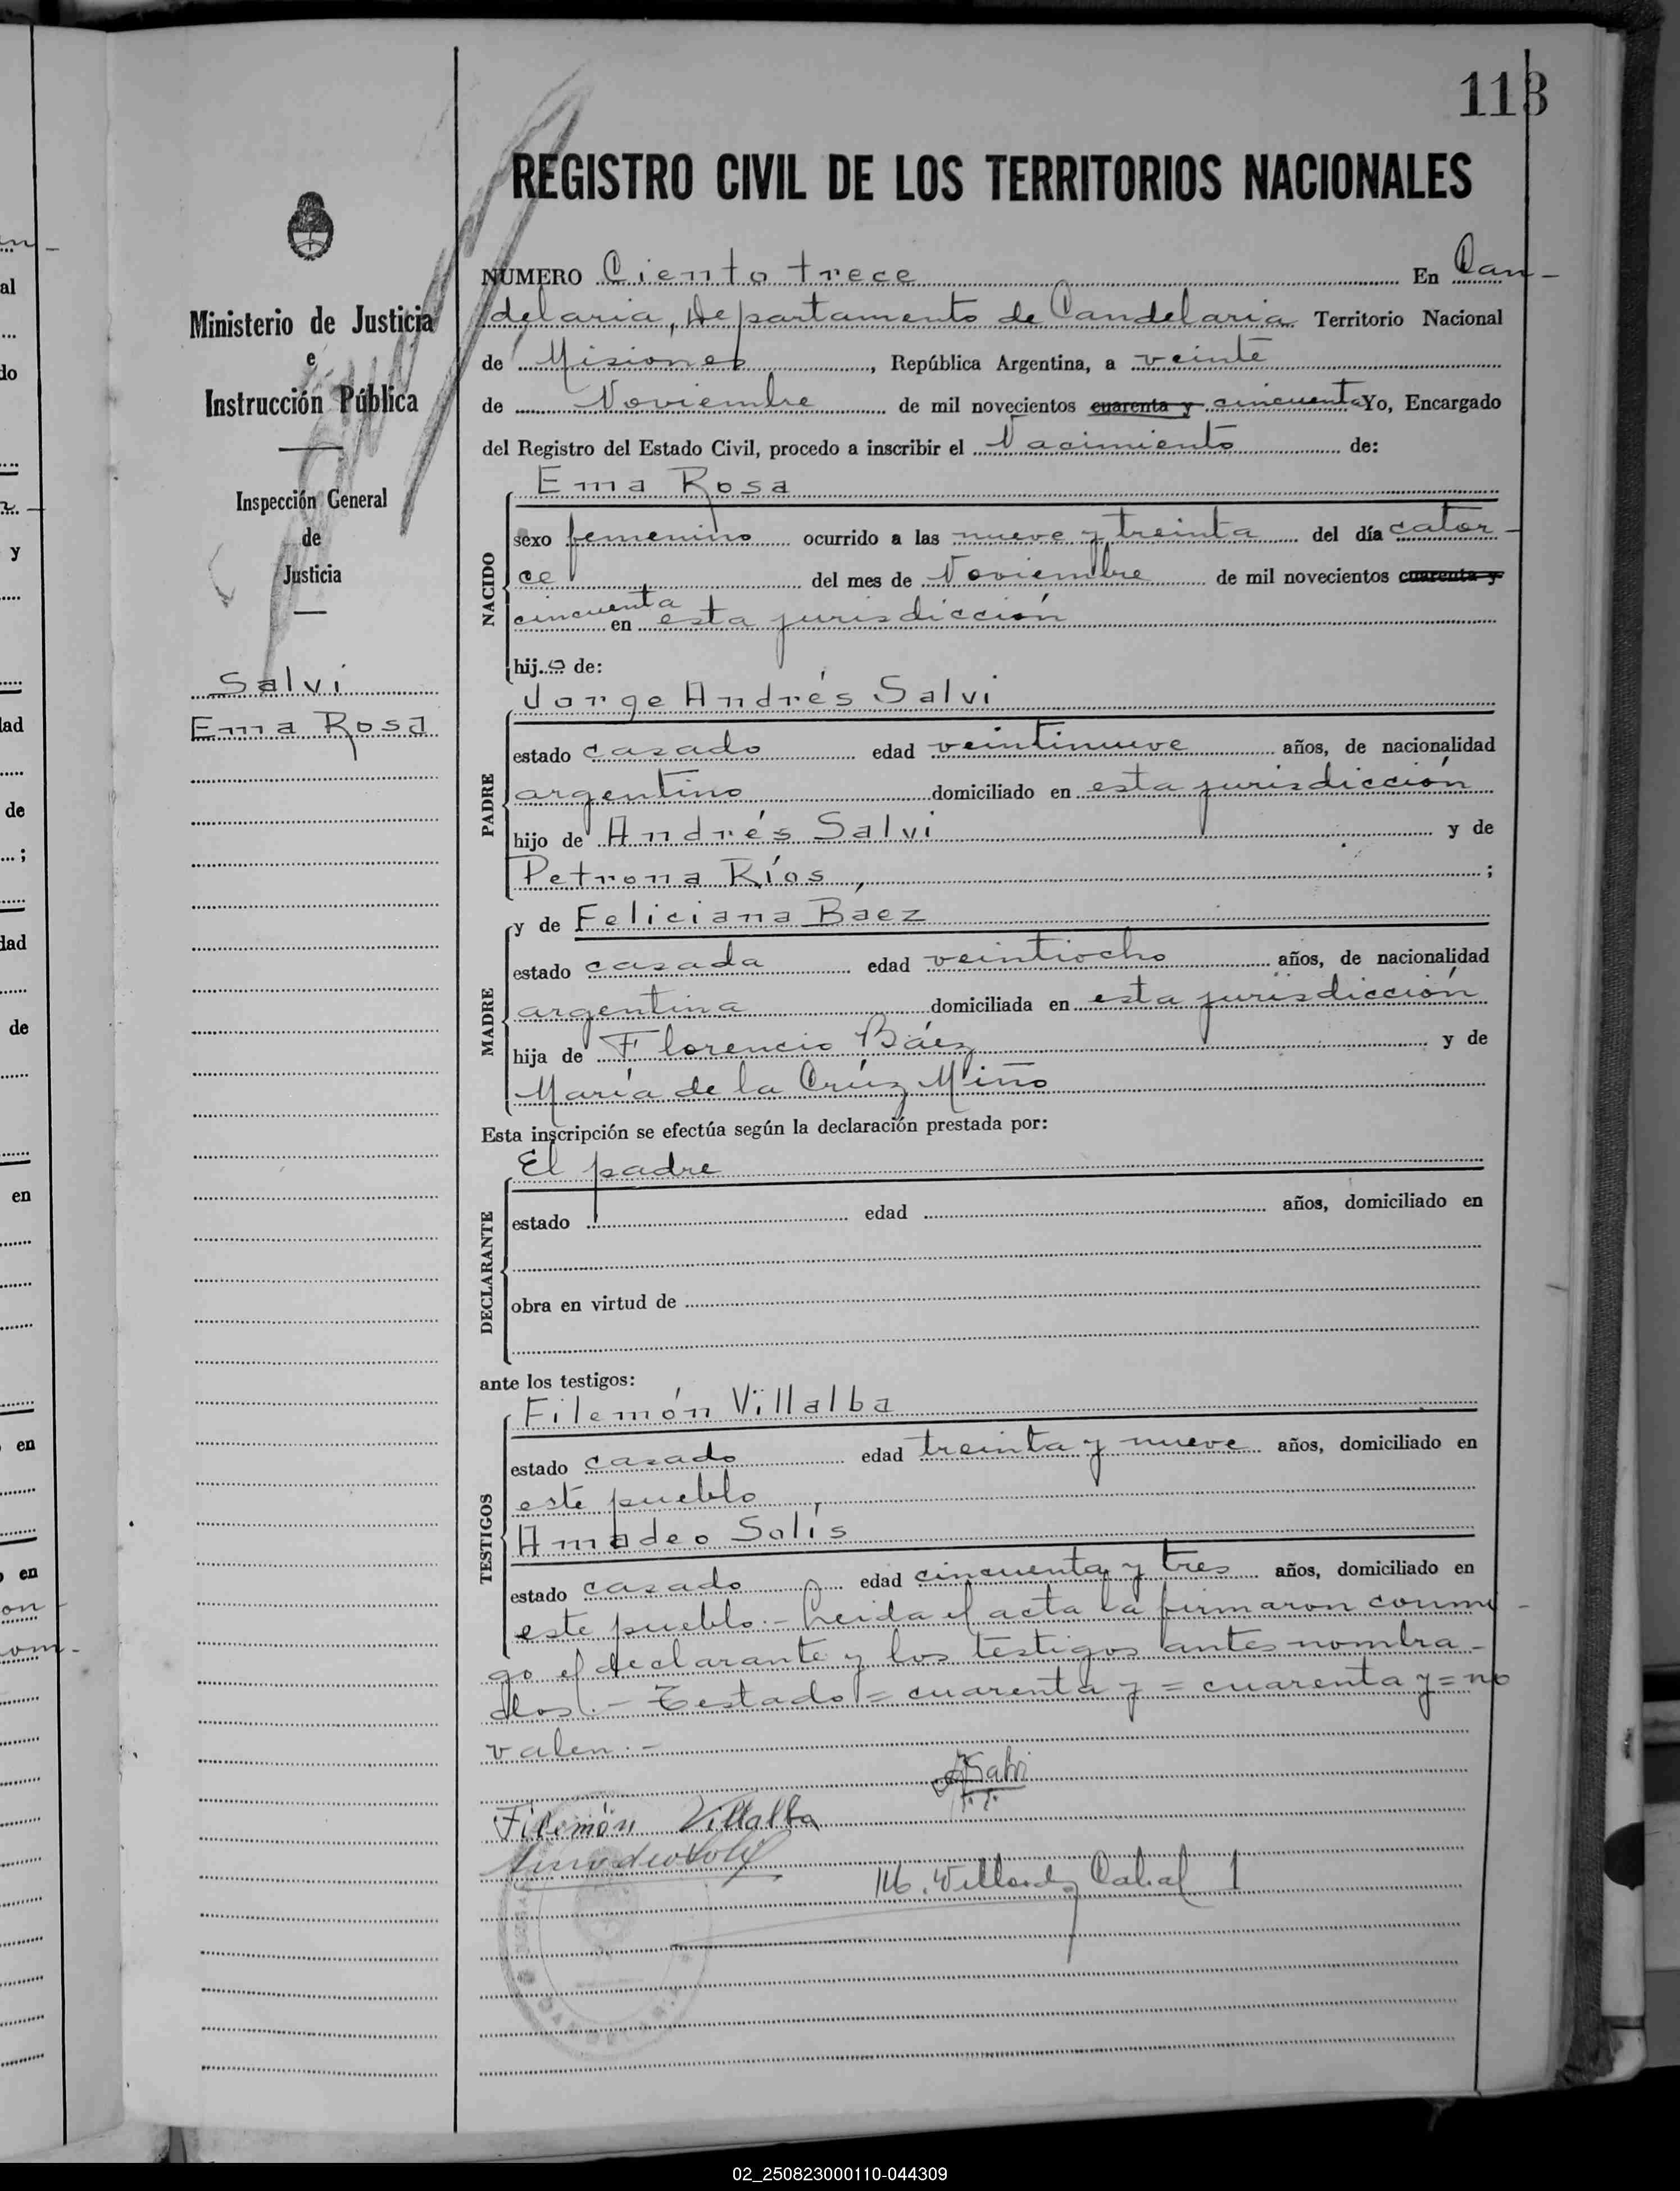 113
REGISTRO CIVIL DE LOS TERRITORIOS NACIONALES
Ministerio de Justicia
e
Instrucción Pública
Inspección General
de
Justicia
Salvi
Ema Rosa
NUMERO Ciento trece En Can-
delaria, Departamento de Candelaria Territorio Nacional
de Misiones, República Argentina, a veinte
de Noviembre de mil novecientos cuarenta y cincuenta Yo, Encargado
del Registro del Estado Civil, procedo a inscribir el Nacimiento de:
NACIDO
Ema Rosa
sexo femenino ocurrido a las nueve y treinta del día cator-
ce del mes de Noviembre de mil novecientos cuarenta y
cincuenta en esta jurisdicción
hija de:
PADRE
Jorge Andrés Salvi
estado casado edad veintinueve años, de nacionalidad
argentino domiciliado en esta jurisdicción
hijo de Andrés Salvi y de
Petrona Ríos, ;
MADRE
y de Feliciana Báez
estado casada edad veintiocho años, de nacionalidad
argentina domiciliada en esta jurisdicción
hija de Florencio Báez y de
María de la Crúz Miño
Esta inscripción se efectúa según la declaración prestada por:
DECLARANTE
El padre
estado edad años, domiciliado en
obra en virtud de
ante los testigos:
TESTIGOS
Filemón Villalba
estado casado edad treinta y nueve años, domiciliado en
este pueblo,
Amadeo Solís
estado casado edad cincuenta y tres años, domiciliado en
este pueblo.- Leida el acta la firmaron conmi-
go el declarante y los testigos antes nombra-
dos.- Testado = cuarenta y = cuarenta y = no
valen.-
Salvi
Filemón Villalba
Amadeo Solís
M. Cabal
02_250823000110-044309